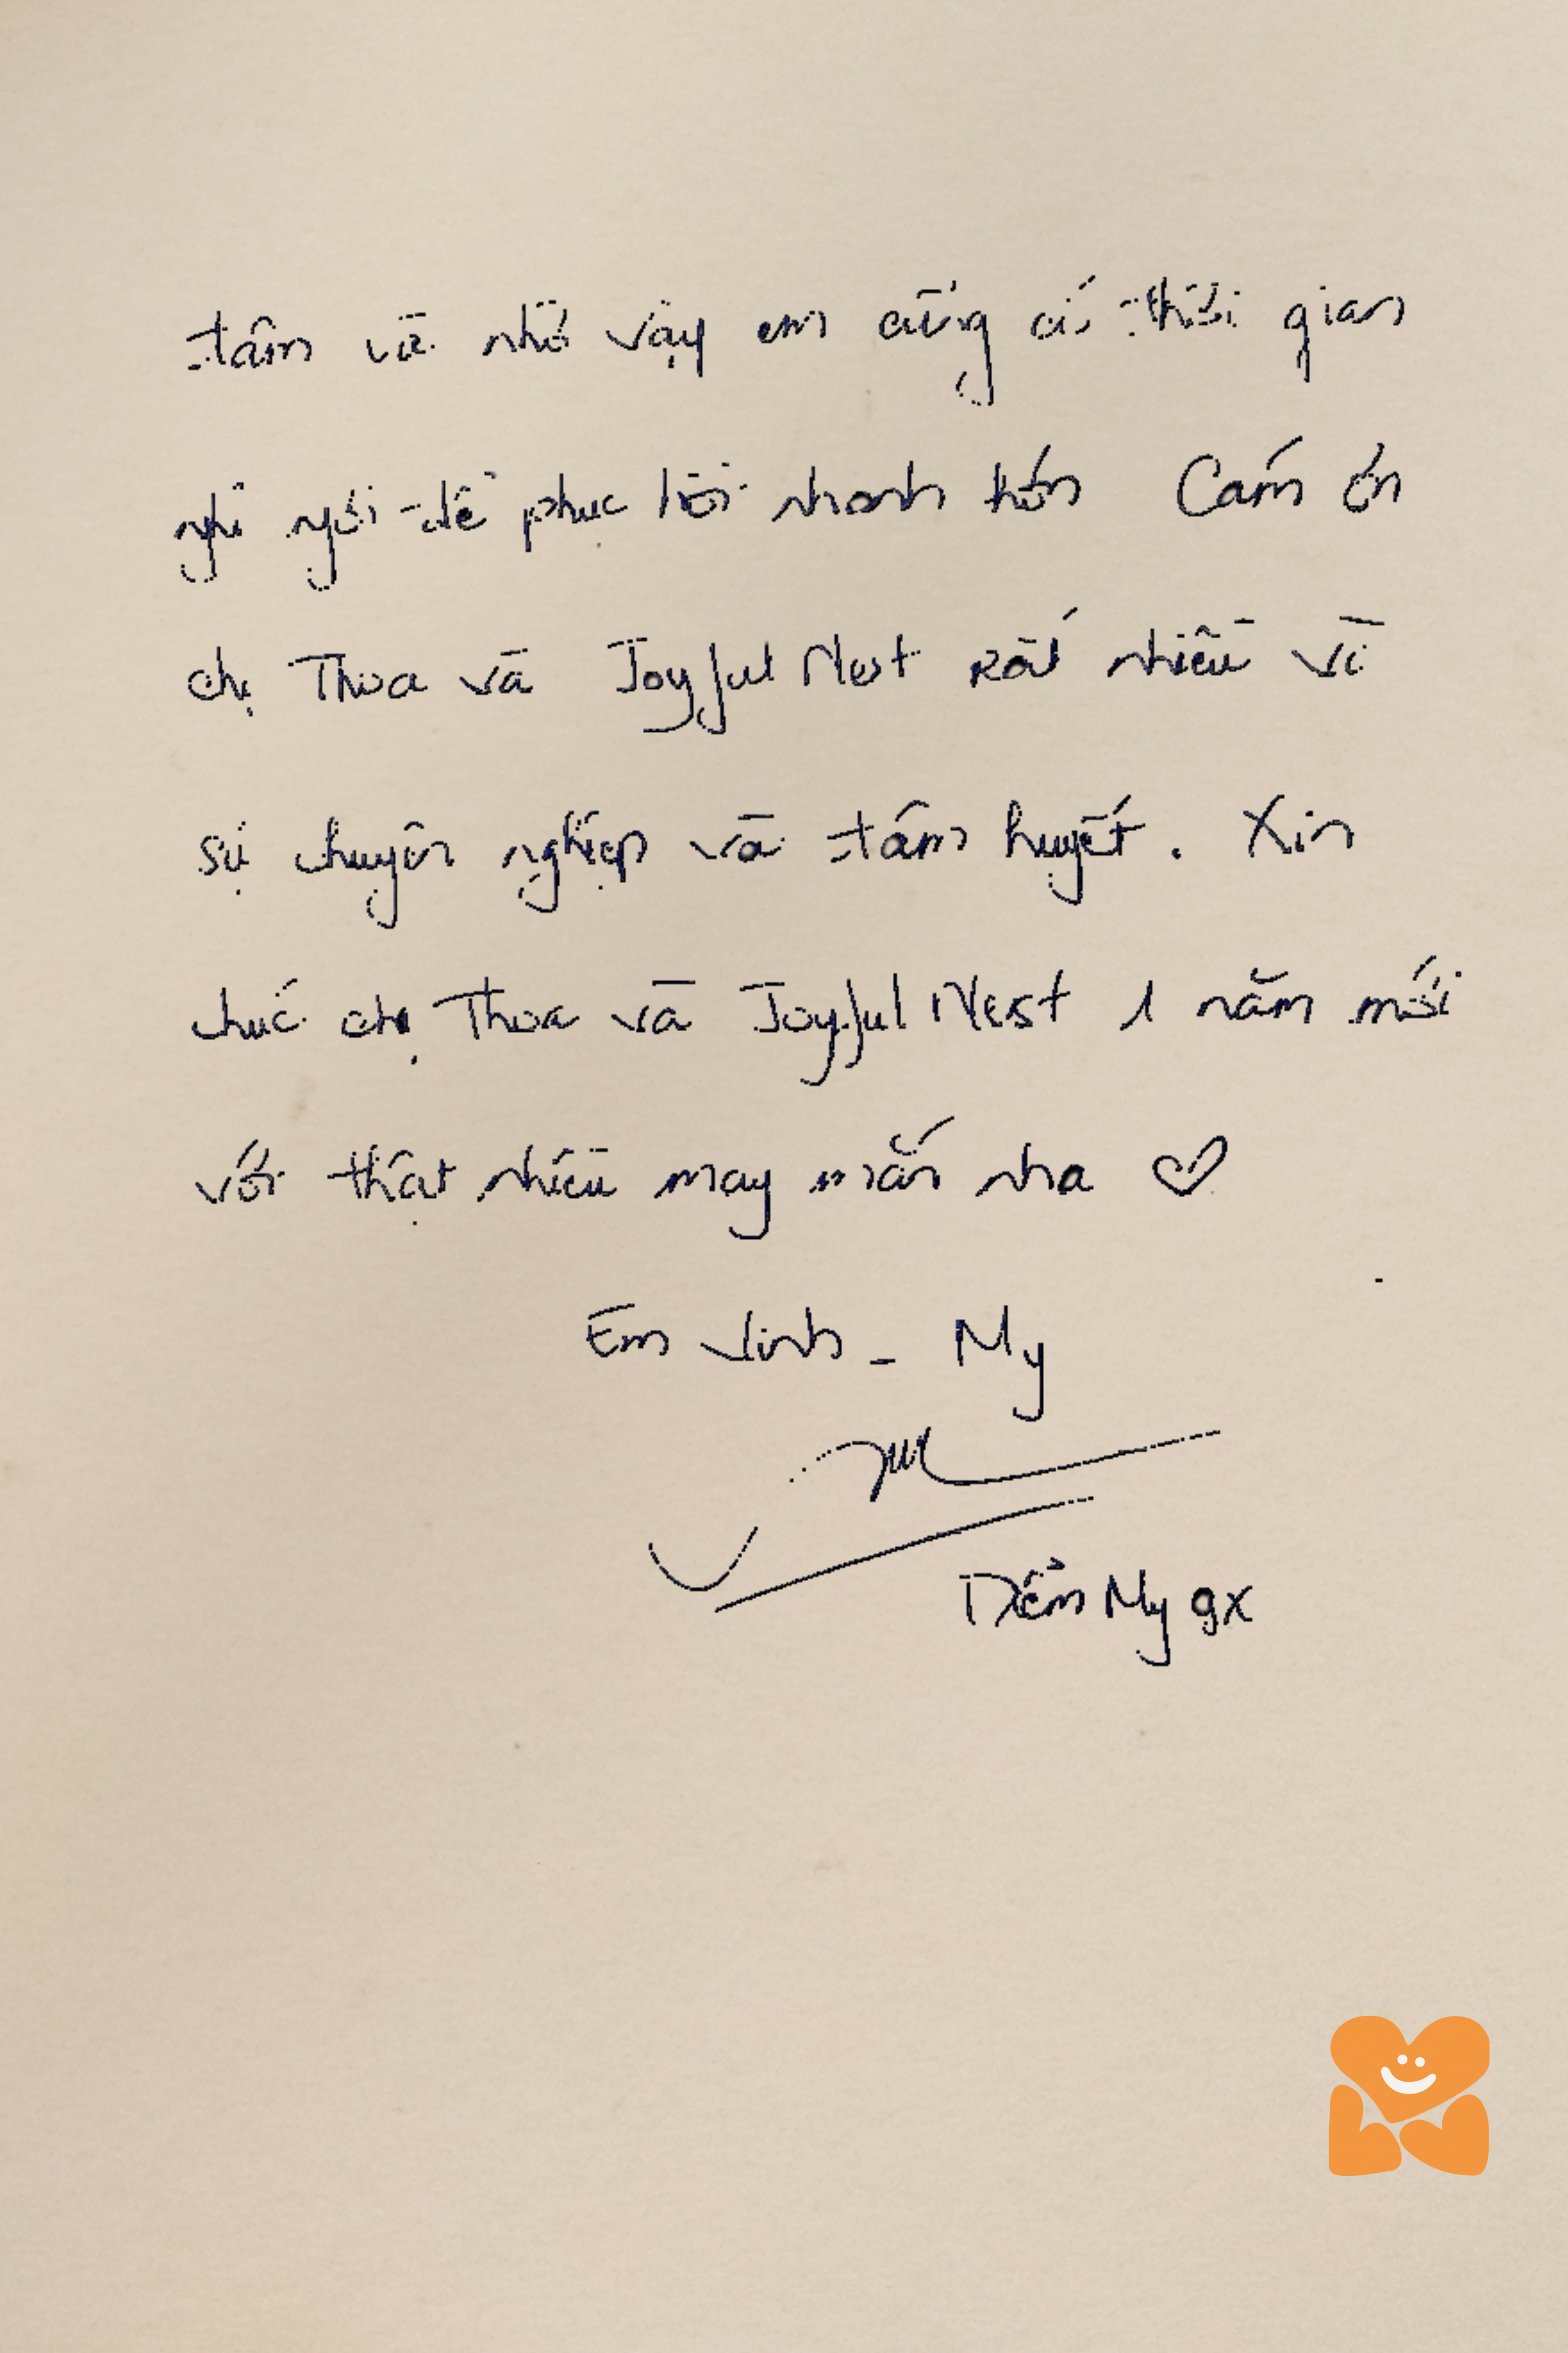 tâm và nhờ vậy em cũng có thời gian
nghỉ ngơi để phục hồi nhanh hơn Cám ơn
chị Thoa và Joyful Nest rất nhiều vì
sự chuyên nghiệp và tâm huyết. Xin
chúc chị Thoa và Joyful Nest 1 năm mới
với thật nhiều may mắn nha ♡
Em Vinh - My
Diễm My 9x